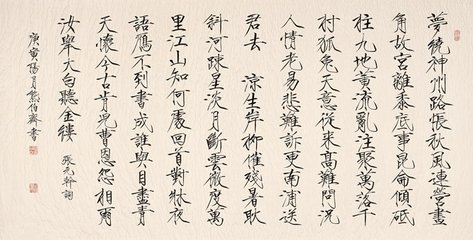 夢繞神州路悵秋風連營畫
角故宮離黍底事昆侖傾砥
柱九地黃流亂注聚萬落千
村狐兔天意從來高難問況
人情老易悲難訴更南浦送
君去 涼生岸柳催殘暑耿
斜河疎星淡月斷雲微度萬
里江山知何處回首對牀夜
語鴈不到書成誰與目盡青
天懷今古肯兒曹恩怨相爾
汝舉大白聽金縷 張元幹詞
庚寅陽月熊伯齊書